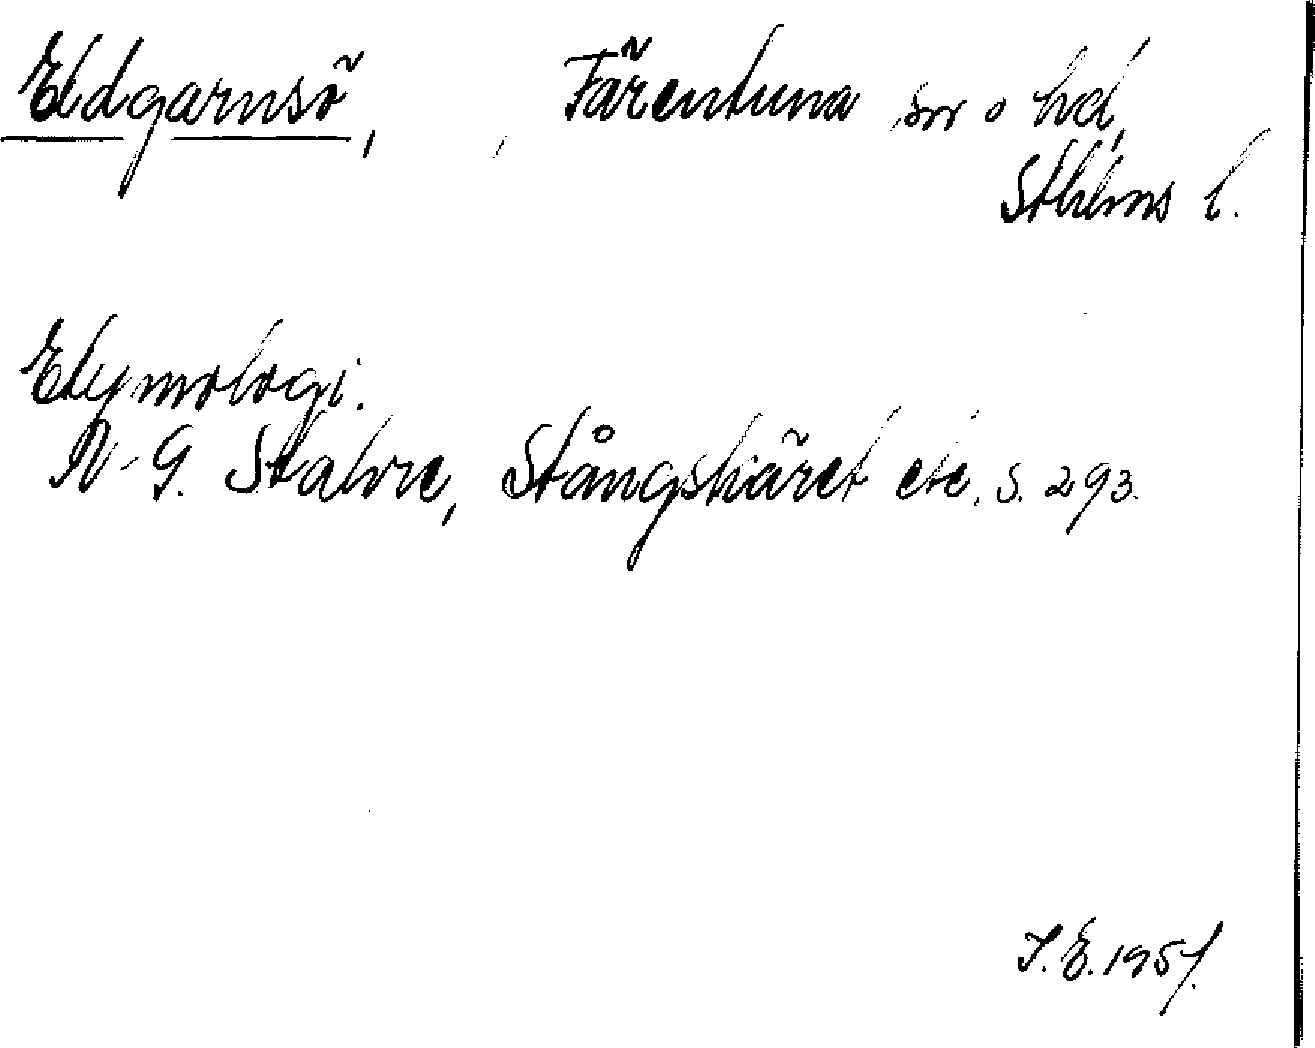 Eldgarnsö, , Färentuna sn o hd,
Sthlms l.
Etymologi.
N-G. Stahre, Stångskäret etc. s. 293.
I. E. 1957.